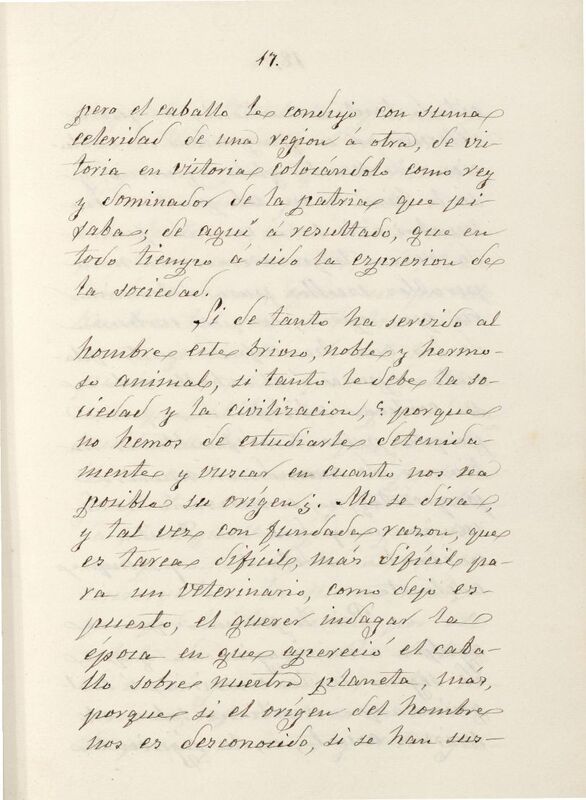 17.
pero el caballo le condujo con suma
celeridad de una region á otra, de vi-
toria en vitoria colocándolo como rey
y dominador de la patria que pi-
saba; de aquí á resultado, que en
todo tiempo á sido la espresion de
la sociedad.
Si de tanto ha servido al
hombre este brioso, noble y hermo-
so animal, si tanto le debe la so-
ciedad y la civilizacion, ¿ porque
no hemos de estudiarle detenida-
mente y vuscar en cuanto nos sea
posible su orígen¿. Me se dirá,
y tal vez con fundada razon, que
es tarea difícil, más difícil pa-
ra un veterinario, como dejo es-
puesto, el querer indagar la
época en que apereció el caba-
llo sobre nuestro planeta, más,
porque si el orígen del hombre
nos es desconocido, si se han sus-